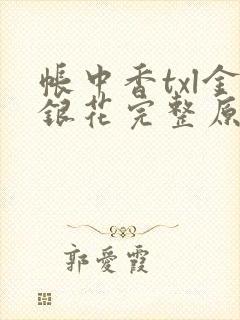 帳中香txl金
銀花完整原
郭愛霞